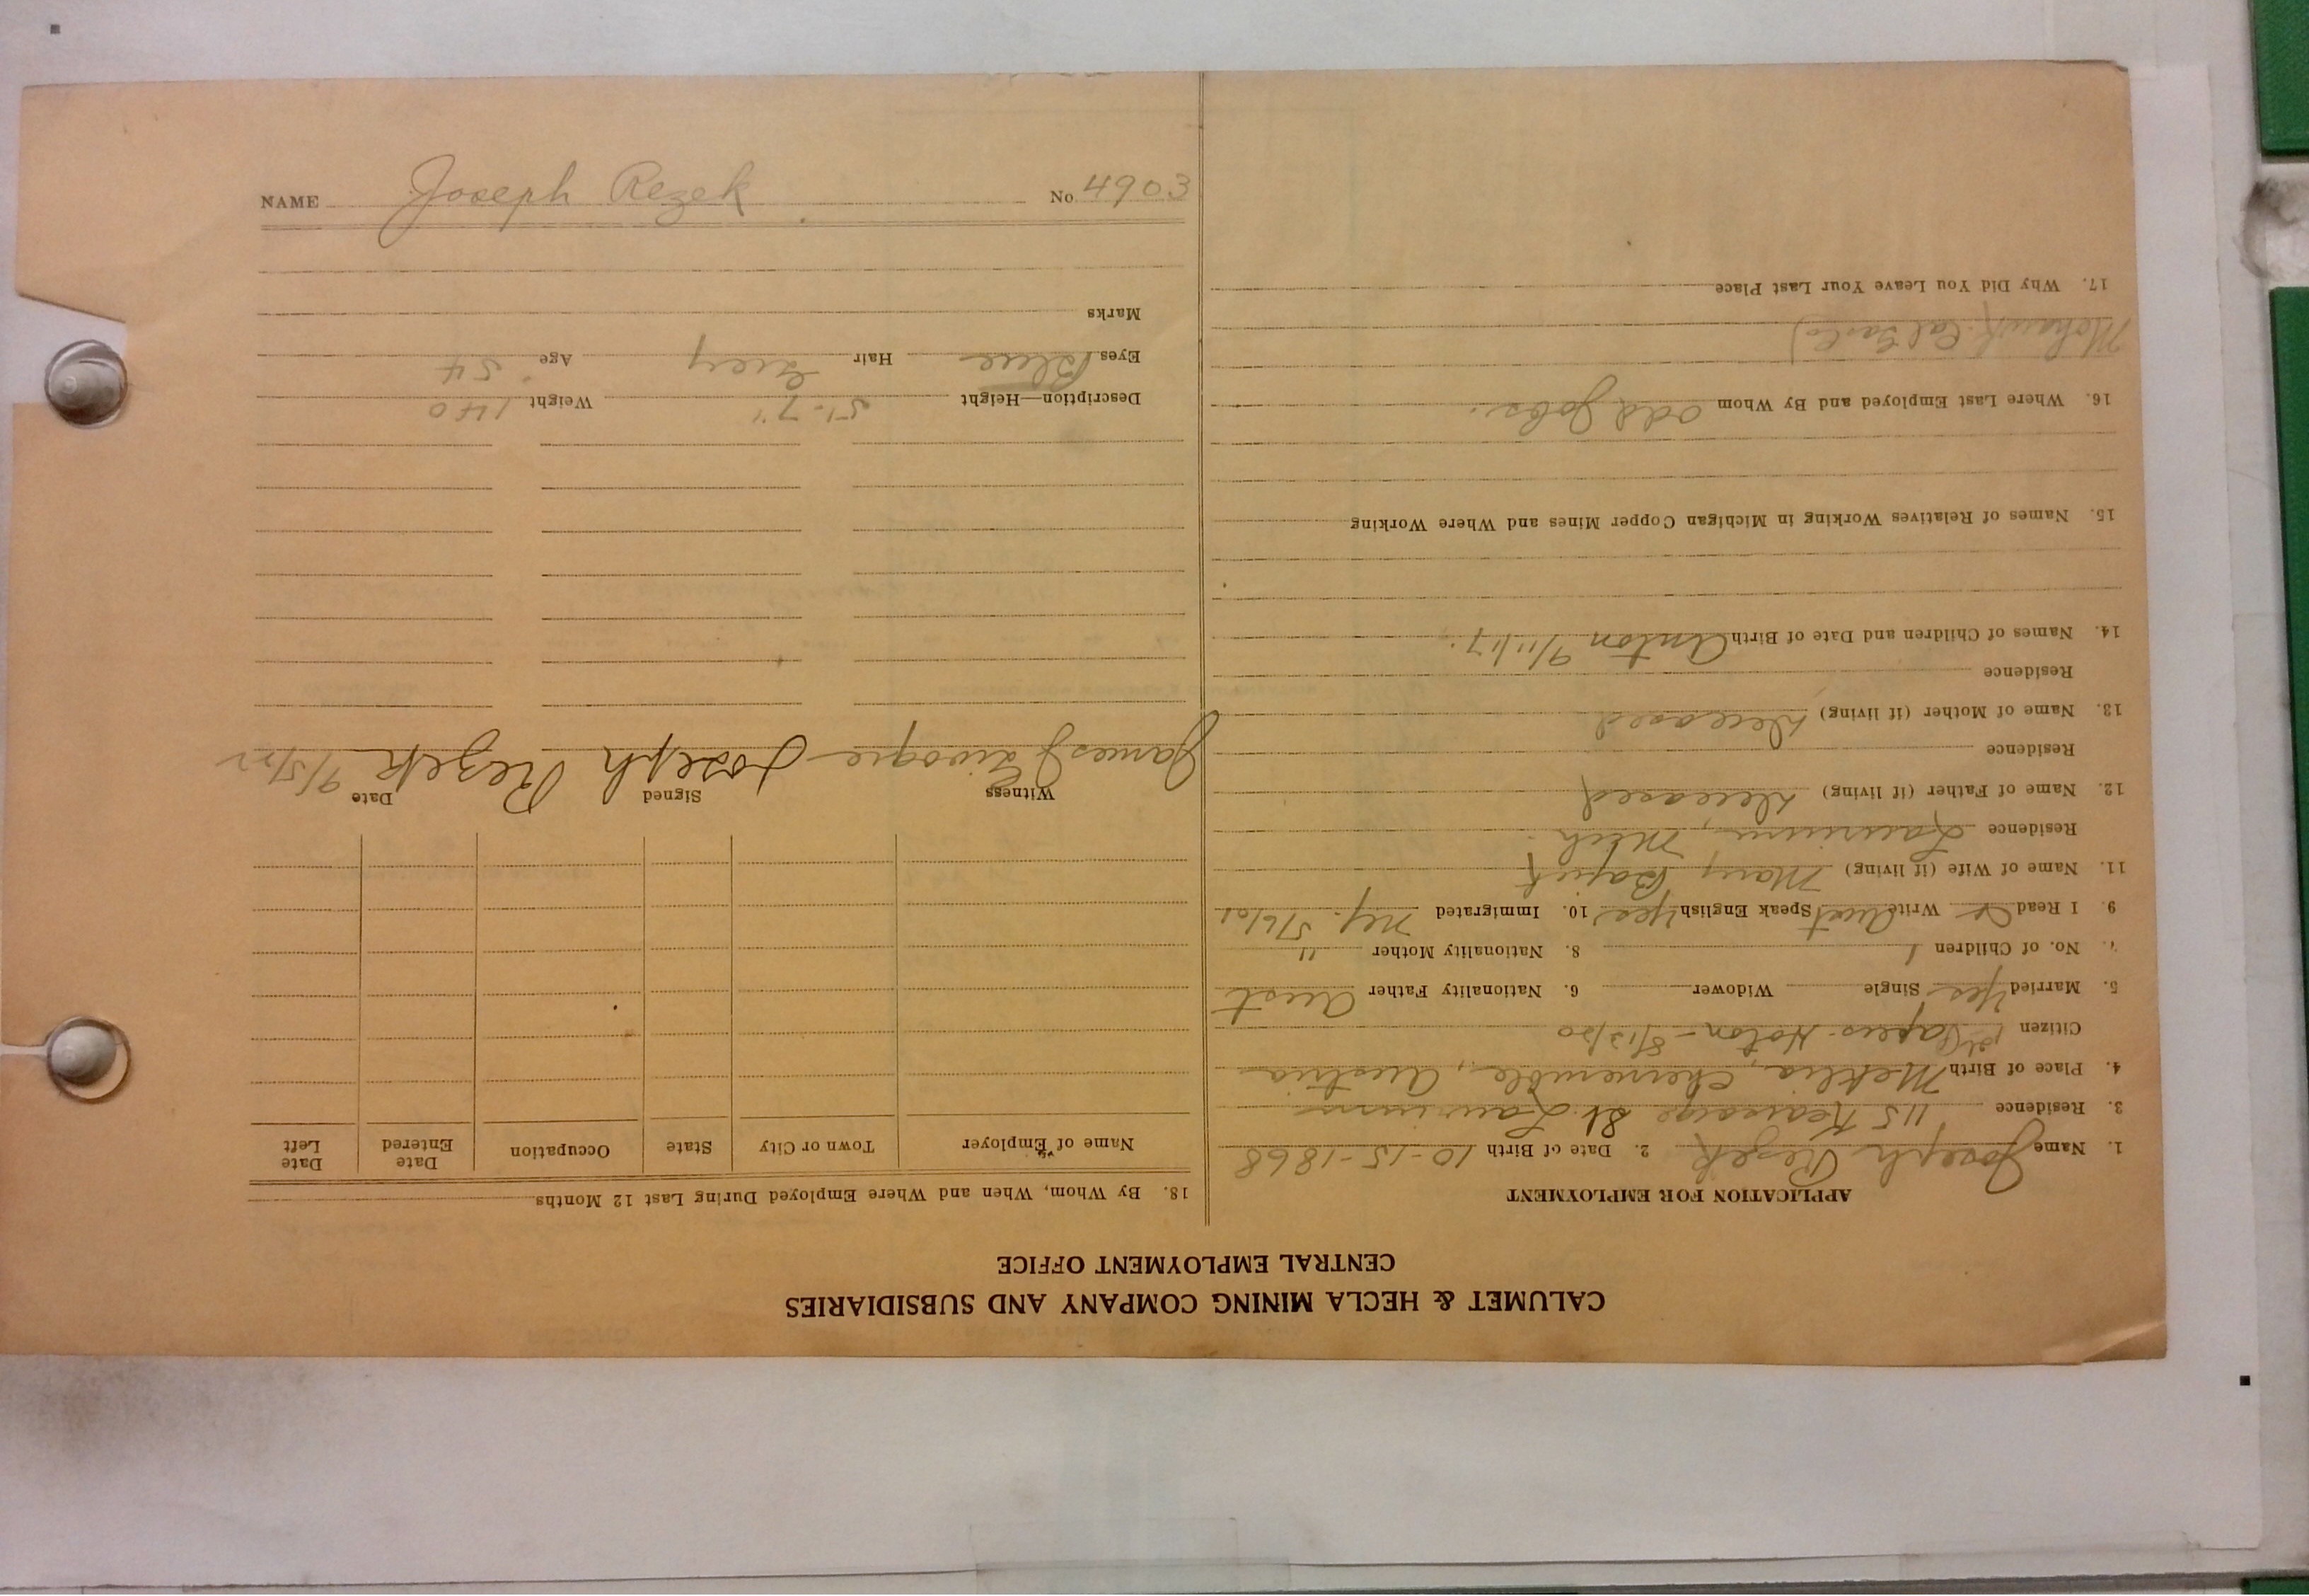 CALUMET & HECLA MINING COMPANY AND SUBSIDIARIES
CENTRAL EMPLOYMENT OFFICE
APPLICATION FOR EMPLOYMENT
1. Name Joseph Rezek 2. Date of Birth 10-15-1868
3. Residence 115 Kearsarge St. Laurium
4. Place of Birth Metlia, Chernemble, Austria
Citizen 1st Papers Hoton - 8/13/20
5. Married Yes Single Widower 6. Nationality Father Aust
7. No. of Children 1 8. Nationality Mother "
9. I Read Write Aust Speak English Yes 10. Immigrated N.Y. 5/6/01
11. Name of Wife (if living) Mary
Residence Laurium, Mich.
12. Name of Father (if living) Deceased
Residence
13. Name of Mother (if living) Deceased
Residence
14. Names of Children and Date of Birth Anton 9/11/17.
15. Names of Relatives Working in Michigan Copper Mines and Where Working
16. Where Last Employed and By Whom Odd Jobs.
Mohawk
17. Why Did You Leave Your Last Place
18. By Whom, When and Where Employed During Last 12 Months
Name of Employer Town or City State Occupation Date Entered Date Left
Witness Signed Date
James Joseph Rezek 9/5/22
Description—Height 5'-7" Weight 140
Eyes Blue Hair Grey Age 54
Marks
NAME Joseph Rezek No 4903